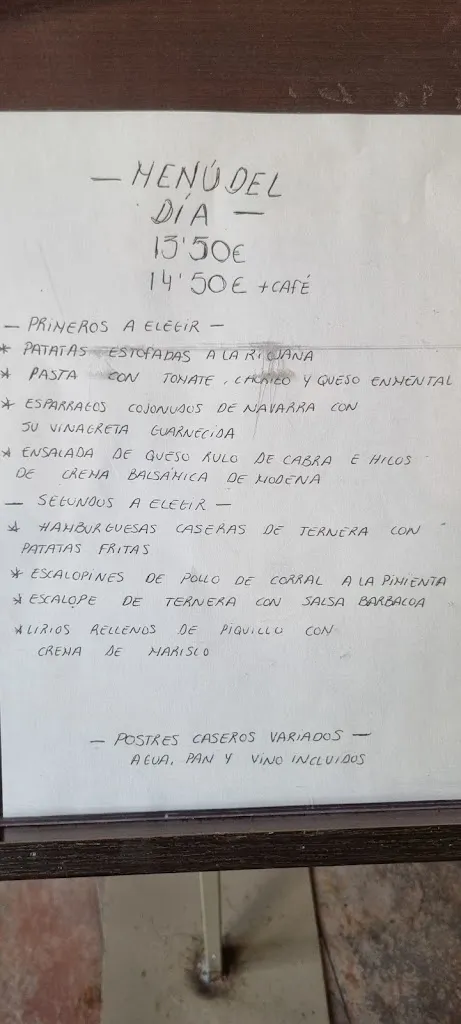 — MENÚ DEL
DÍA —
13'50€
14'50€ + CAFÉ
— PRIMEROS A ELEGIR —
* PATATAS ESTOFADAS A LA RIOJANA
* PASTA CON TOMATE, CHORIZO Y QUESO ENMENTAL
* ESPARRAGOS COJONUDOS DE NAVARRA CON
SU VINAGRETA GUARNECIDA
* ENSALADA DE QUESO RULO DE CABRA E HILOS
DE CREMA BALSÁMICA DE MODENA
— SEGUNDOS A ELEGIR —
* HAMBURGUESAS CASERAS DE TERNERA CON
PATATAS FRITAS
* ESCALOPINES DE POLLO DE CORRAL A LA PIMIENTA
* ESCALOPE DE TERNERA CON SALSA BARBACOA
* LIRIOS RELLENOS DE PIQUILLO CON
CREMA DE MARISCO
— POSTRES CASEROS VARIADOS —
AGUA, PAN Y VINO INCLUIDOS